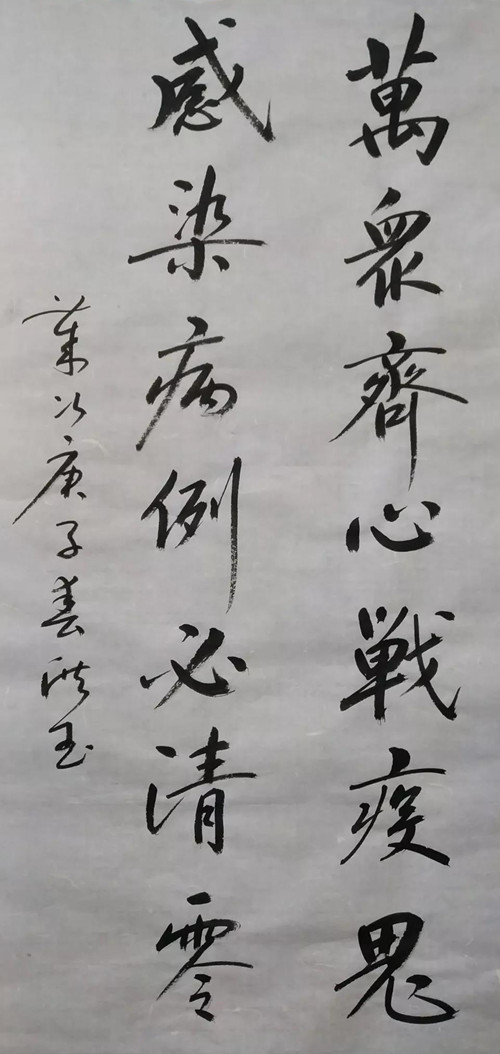 萬眾齊心戰疫鬼
感染病例必清零
歲次庚子春洪玉